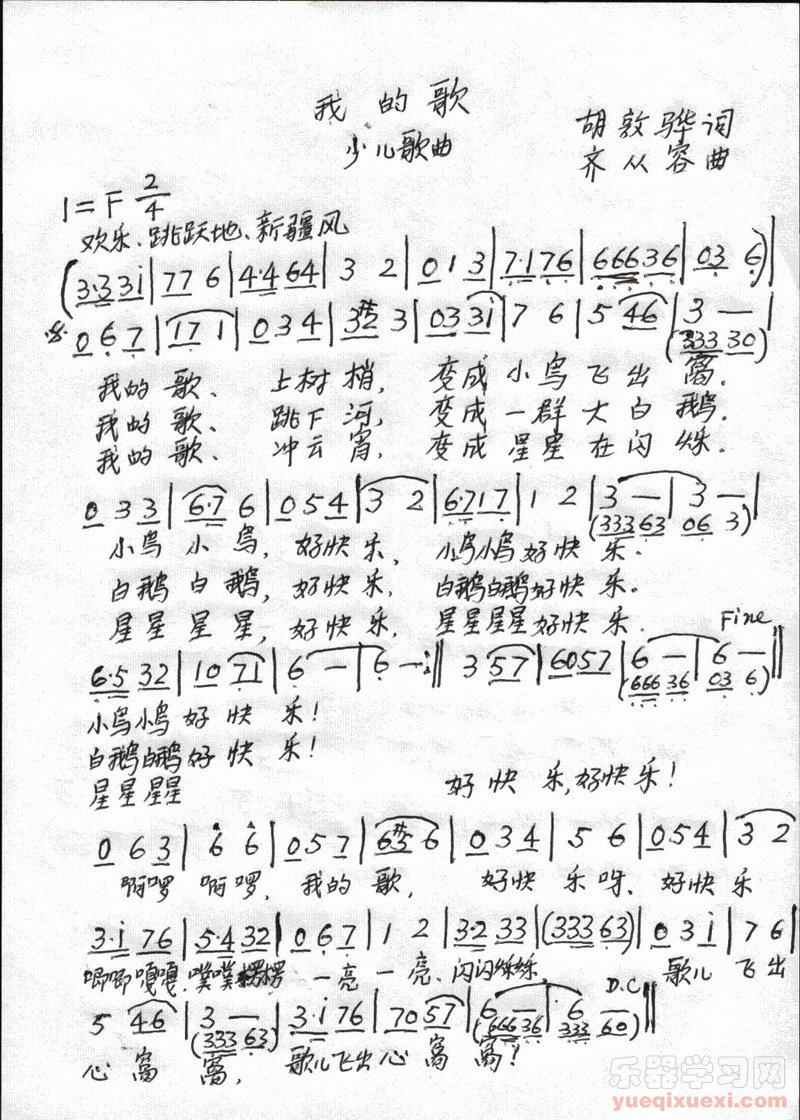 我的歌
少儿歌曲
胡敦骅词
齐从容曲
1=F 2/4
欢乐、跳跃地、新疆风
(3·33i|77 6|4·4 64|3 2|0 1 3|7·176|666 36|03 6)|
0 6 7|171|0 3 4|3#2 3|03 3i|7 6|5 46|3 —|
(333 30)
我的歌、 上树梢, 变成小鸟飞出窝.
我的歌、 跳下河, 变成一群大白鹅.
我的歌、 冲云霄, 变成星星在闪烁.
0 3 3|6·7 6|0 5 4|3 2|6·717|1 2|3 —|3 —|
(333 63 06 3)
小鸟小鸟, 好快乐, 小鸟小鸟好快乐.
白鹅白鹅, 好快乐, 白鹅白鹅好快乐.
星星星星, 好快乐, 星星星星好快乐.
Fine
6·5 32|10 71|6 —|6 —:‖ 3 57|6057|6 —|6 —‖
(666 36 03 6)
小鸟小鸟好快乐!
白鹅白鹅好快乐!
星星星星
好快乐,好快乐!
0 6 3|6 6|0 5 7|6#5 6|0 3 4|5 6|0 5 4|3 2
啊啰啊啰, 我的歌, 好快乐呀、好快乐
3·i 76|5·4 32|0 6 7|1 2|3·2 33|(333 63)|0 3 i|7 6|
唧唧嘎嘎、噗噗楞楞 一亮一亮、闪闪烁烁, 歌儿飞出
D.C
5 46|3 —|3·i 76|70 57|6 —|6 —‖
(333 63) (666 36 333 60)
心窝窝, 歌儿飞出心窝窝!
乐器学习网
yueqixuexi.com